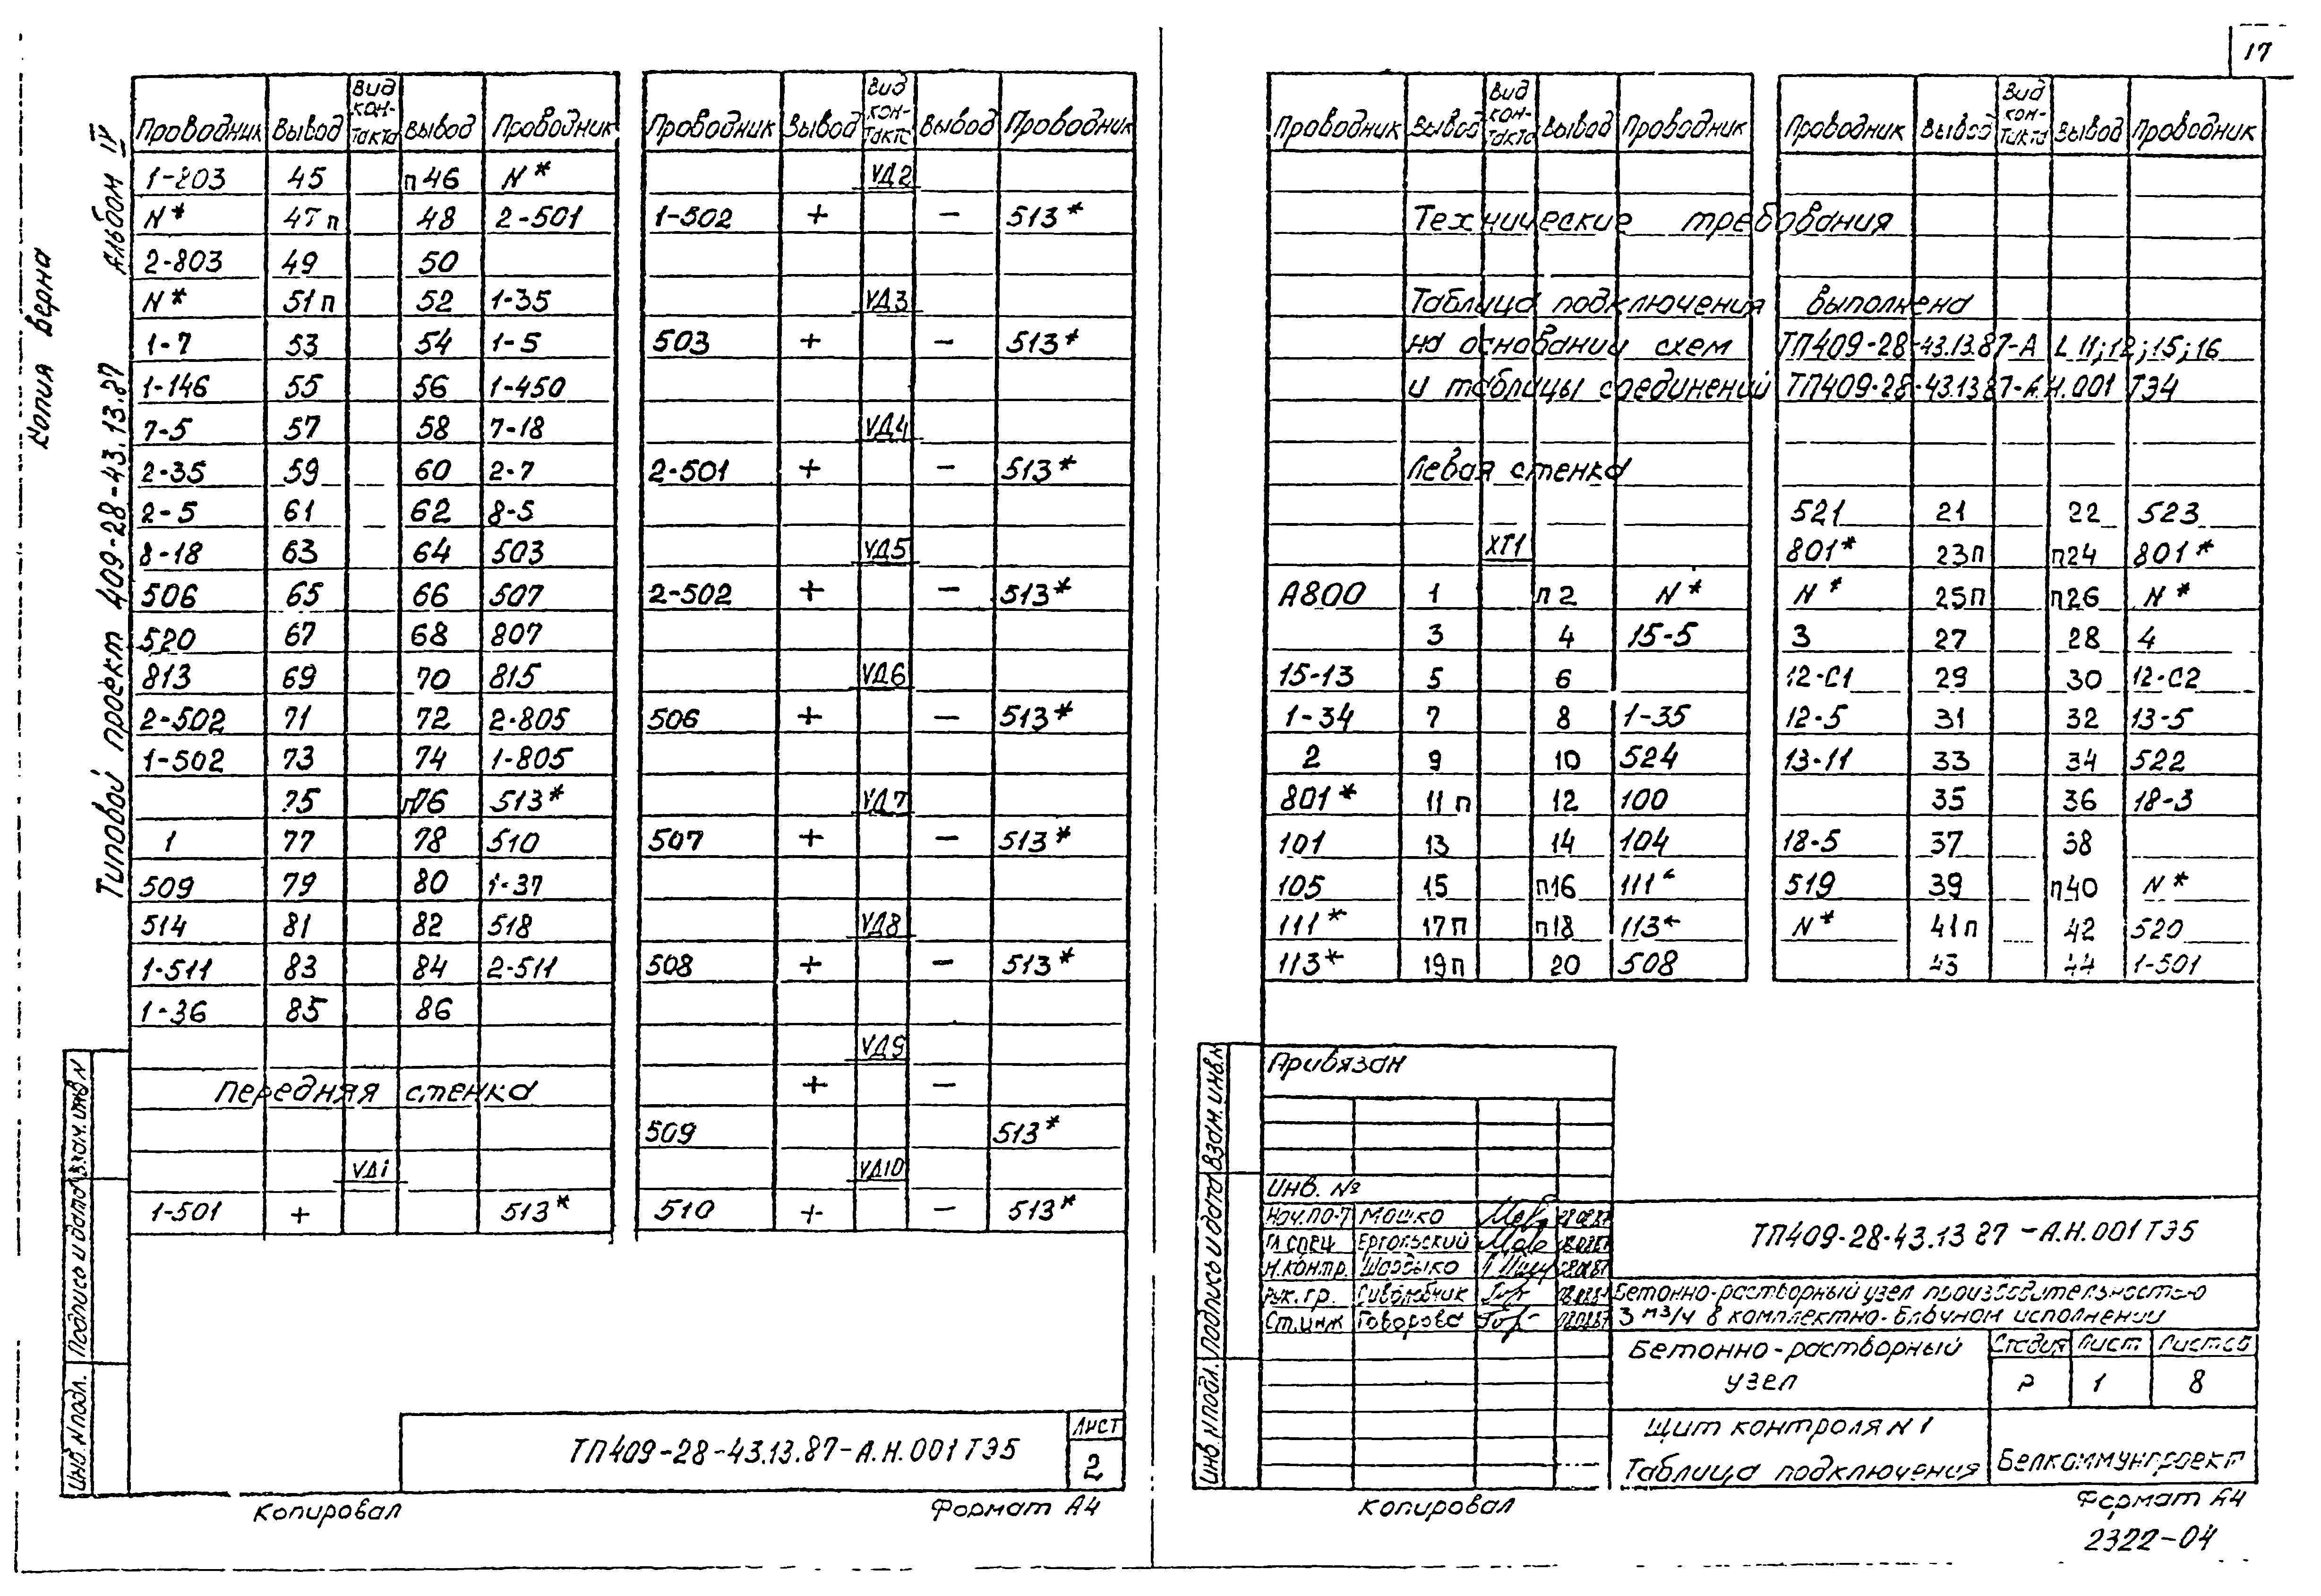 17
Копия верна
Типовой проект 409-28-43.13.87 Альбом IV
Проводник Вывод Вид контакта Вывод Проводник
1-803 45 п46 N*
N* 47п 48 2-501
2-803 49 50
N* 51п 52 1-35
1-7 53 54 1-5
1-146 55 56 1-450
7-5 57 58 7-18
2-35 59 60 2-7
2-5 61 62 8-5
8-18 63 64 503
506 65 66 507
520 67 68 807
813 69 70 815
2-502 71 72 2-805
1-502 73 74 1-805
75 п76 513*
1 77 78 510
509 79 80 1-37
514 81 82 518
1-511 83 84 2-511
1-36 85 86
Передняя стенка
VД1
1-501 + 513*
Проводник Вывод Вид контакта Вывод Проводник
VД2
1-502 + - 513*
VД3
503 + - 513*
VД4
2-501 + - 513*
VД5
2-502 + - 513*
VД6
506 + - 513*
VД7
507 + - 513*
VД8
508 + - 513*
VД9
+ -
509 513*
VД10
510 + - 513*
Инв. N подл. Подпись и дата Взам. инв N
ТП409-28-43.13.87-А.Н.001 ТЭ5
Лист
2
Копировал Формат А4
Проводник Вывод Вид контакта Вывод Проводник
Проводник Вывод Вид контакта Вывод Проводник
Технические требования
Таблица подключения выполнена
на основании схем ТП409-28-43.13.87-А L 11;12;15;16
и таблицы соединений ТП409-28-43.13 87-А.Н.001 ТЭ4
Левая стенка
ХТ1
А800 1 п2 N*
3 4 15-5
15-13 5 6
1-34 7 8 1-35
2 9 10 524
801* 11п 12 100
101 13 14 104
105 15 п16 111*
111* 17п п18 113*
113* 19п 20 508
521 21 22 523
801* 23п п24 801*
N* 25п п26 N*
3 27 28 4
12-С1 29 30 12-С2
12-5 31 32 13-5
13-11 33 34 522
35 36 18-3
18-5 37 38
519 39 п40 N*
N* 41п 42 520
43 44 1-501
Инв N подл. Подпись и дата Взам. инв. N
Привязан
Инв. №
Нач.по-т Мошко
Гл спец Ергольский
Н.контр.
Рук. гр.
Ст.инж Говорова
ТП409-28-43.13 87-А.Н.001 ТЭ5
Бетонно-растворный узел производительностью
3 м3/ч в комплектно-блочном исполнении
Бетонно-растворный
узел
Стадия Лист Листов
Р 1 8
Щит контроля N 1
Таблица подключения
Белкоммунпроект
Копировал Формат А4
2322-04